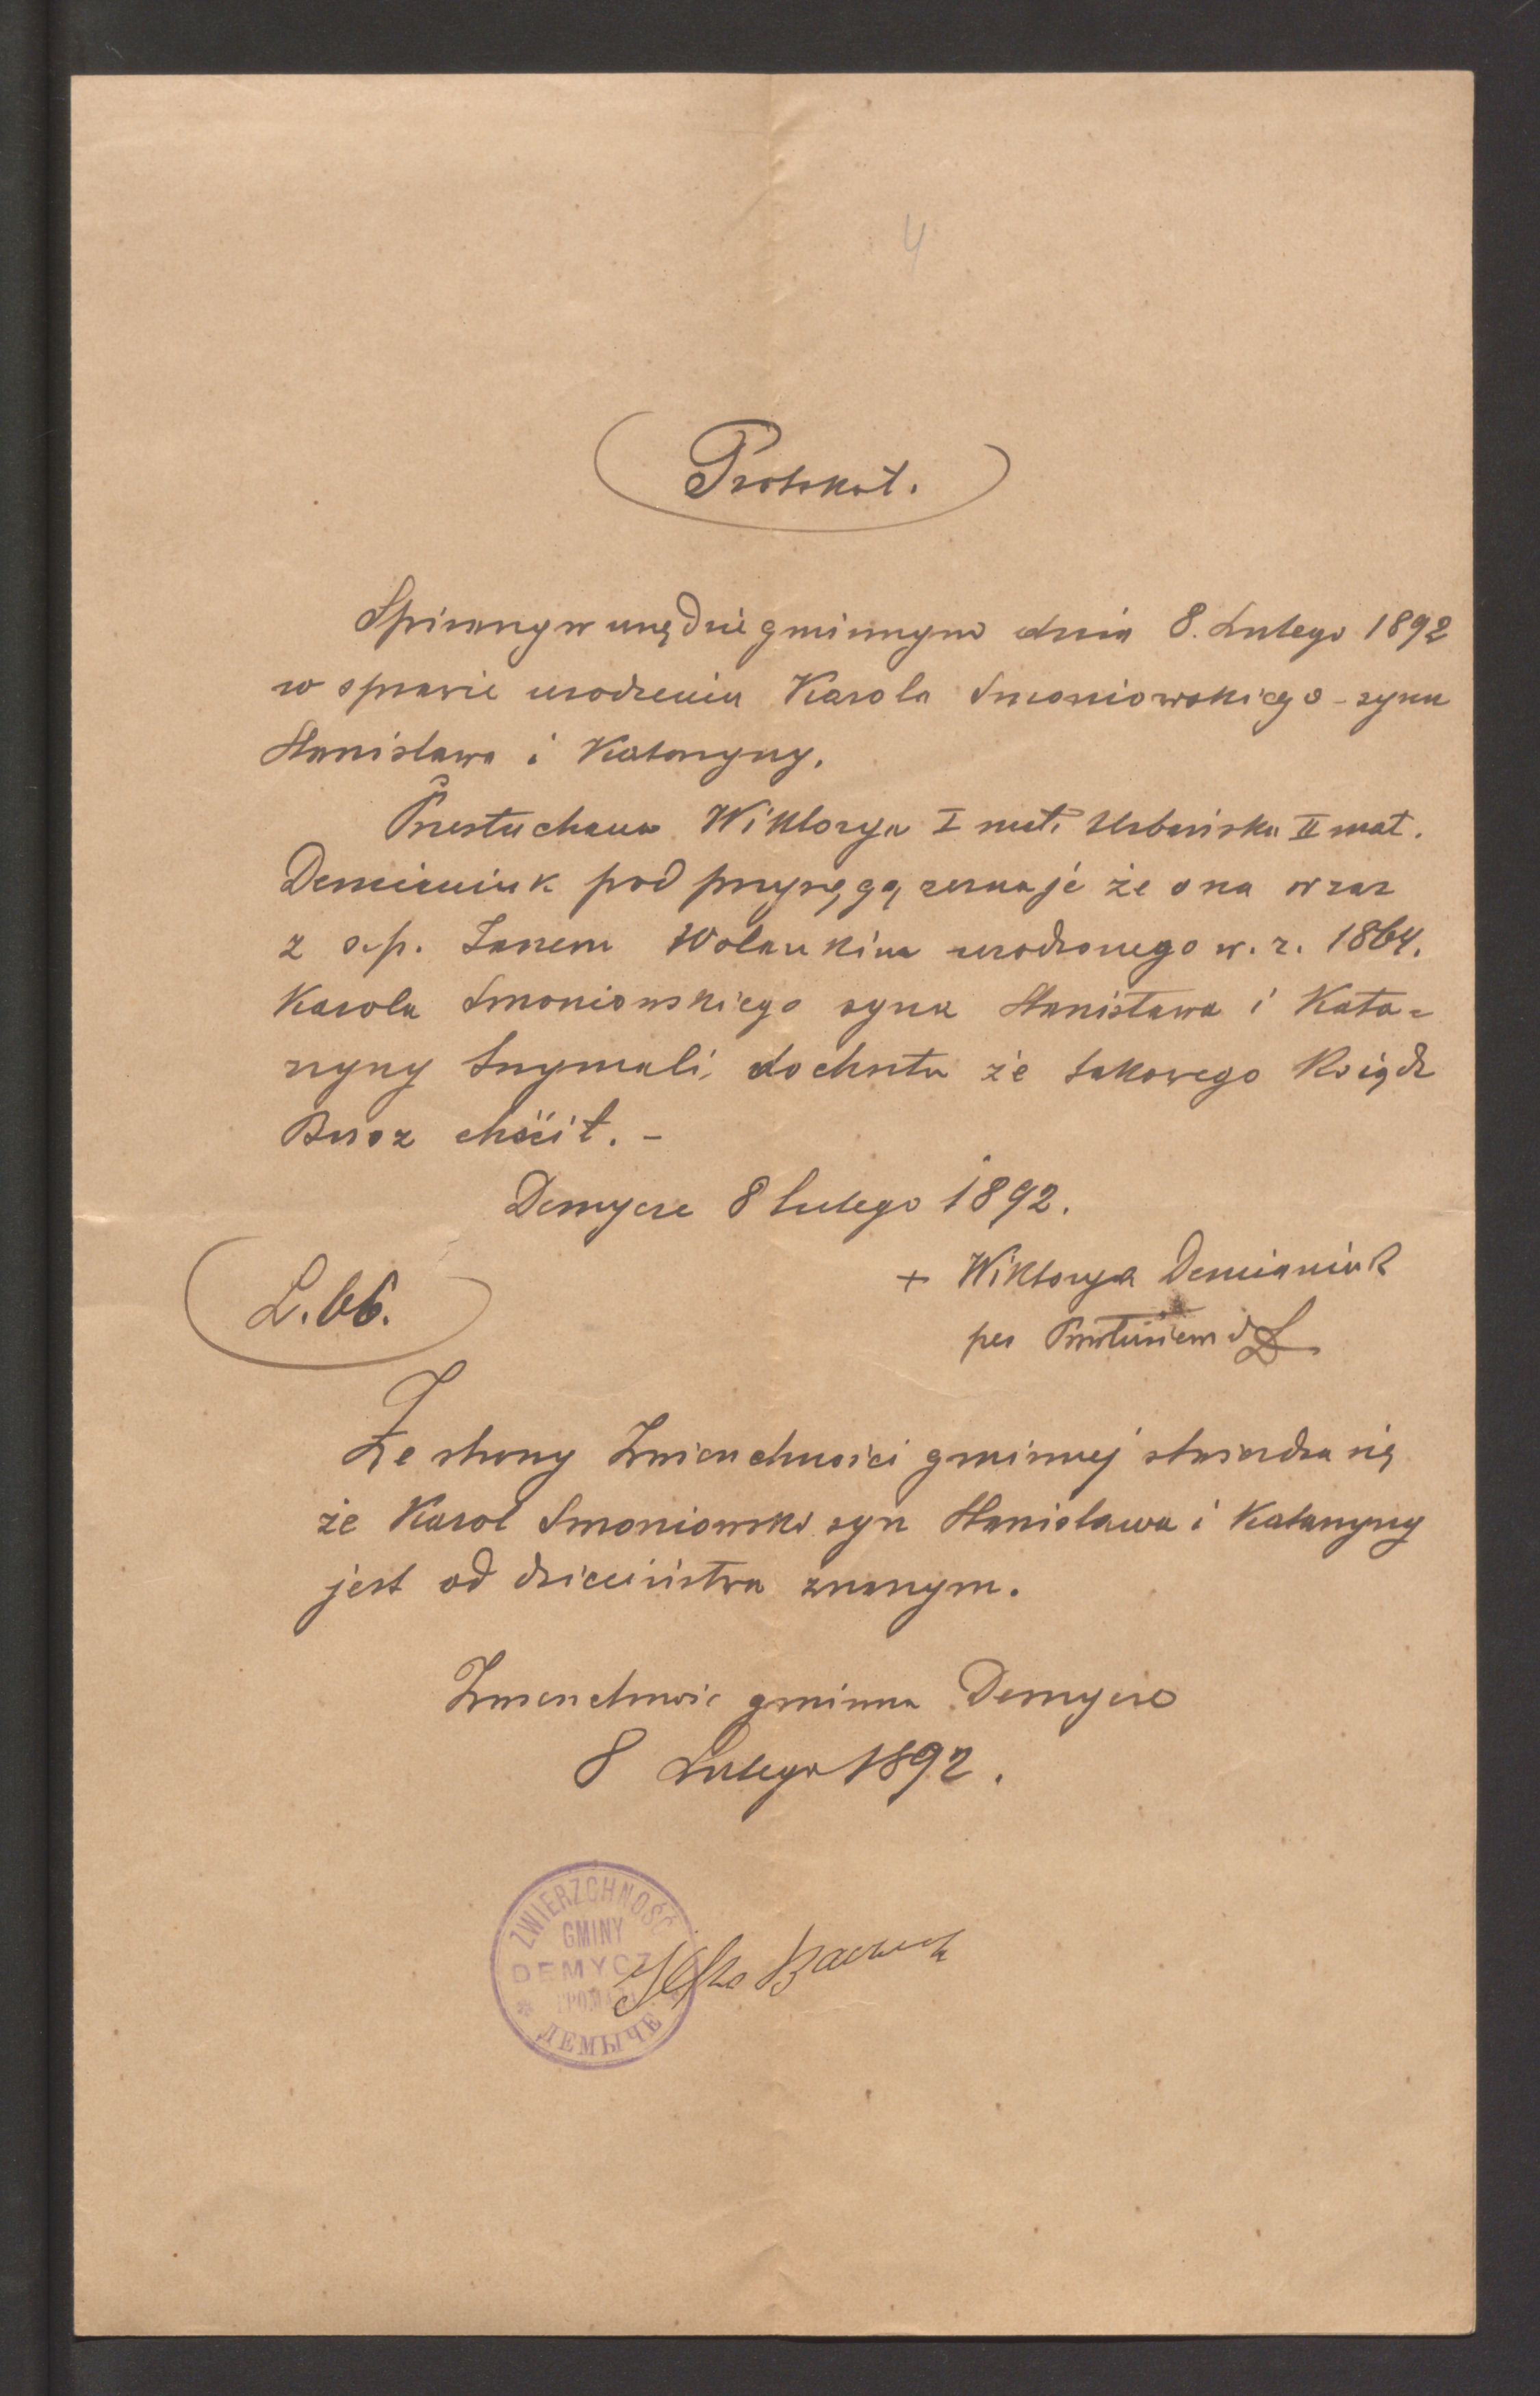 4
Protokół.
Spisany w urzędzie gminnym dnia 8. Lutego 1892
w sprawie urodzenia Karola Smoniowskiego - syna
Stanisława i Katarzyny.
Przesłuchana Wiktorya I mał. Urbańska II mał.
Demianiuk pod przysięgą zeznaje że ona wraz
z ś.p. Janem Wolańkim urodzonego w. r. 1864.
Karola Smoniowskiego syna Stanisława i Kata=
rzyny trzymali, do chrztu że takowego Ksiądz
chścił. -
Demycze 8 lutego 1892.
+ Wiktorya Demianiuk
L. 66.
per
Ze strony Zwierzchności gminnej stwierdza się
że Karol Smoniowski syn Stanisława i Katarzyny
jest od dzieciństwa znanym.
Zwierzchność gminna Demycze
8 Lutego 1892.
ZWIERZCHNOŚĆ
GMINY
DEMYCZE
ГРОМАДА
ДЕМЫЧЕ